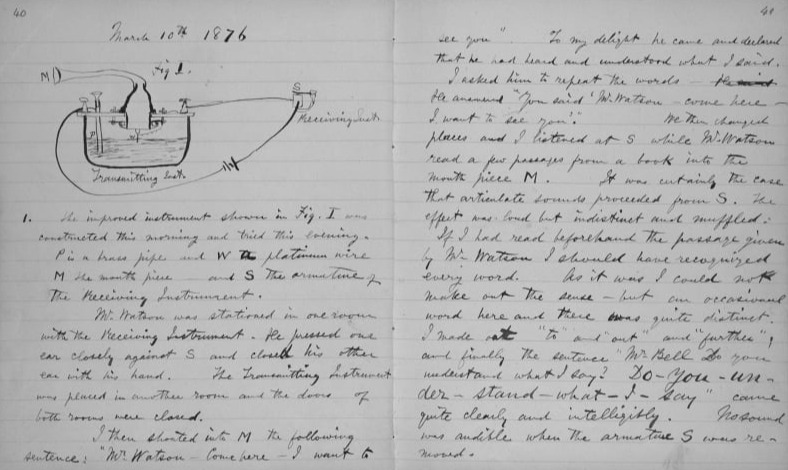 40
March 10th 1876
M
Fig 1.
S
Receiving Inst.
P
W
Transmitting Inst.
1. The improved instrument shown in Fig. I was
constructed this morning and tried this evening.
P is a brass pipe and W the platinum wire
M the mouth piece and S the armature of
the Receiving Instrument.
Mr. Watson was stationed in one room
with the Receiving Instrument. He pressed one
ear closely against S and closed his other
ear with his hand. The Transmitting Instrument
was placed in another room and the doors of
both rooms were closed.
I then shouted into M the following
sentence: "Mr. Watson - Come here - I want to
41
see you". To my delight he came and declared
that he had heard and understood what I said.
I asked him to repeat the words -
He answered "You said 'Mr. Watson - come here -
I want to see you'." We then changed
places and I listened at S while Mr. Watson
read a few passages from a book into the
mouth piece M. It was certainly the case
that articulate sounds proceeded from S. The
effect was loud but indistinct and muffled.
If I had read beforehand the passage given
by Mr. Watson I should have recognized
every word. As it was I could not
make out the sense - but an occasional
word here and there was quite distinct.
I made out "to" and "out" and "further";
and finally the sentence "Mr. Bell Do you
understand what I say? Do-you-un-
der-stand-what-I-say" came
quite clearly and intelligibly. No sound
was audible when the armature S was re-
moved.